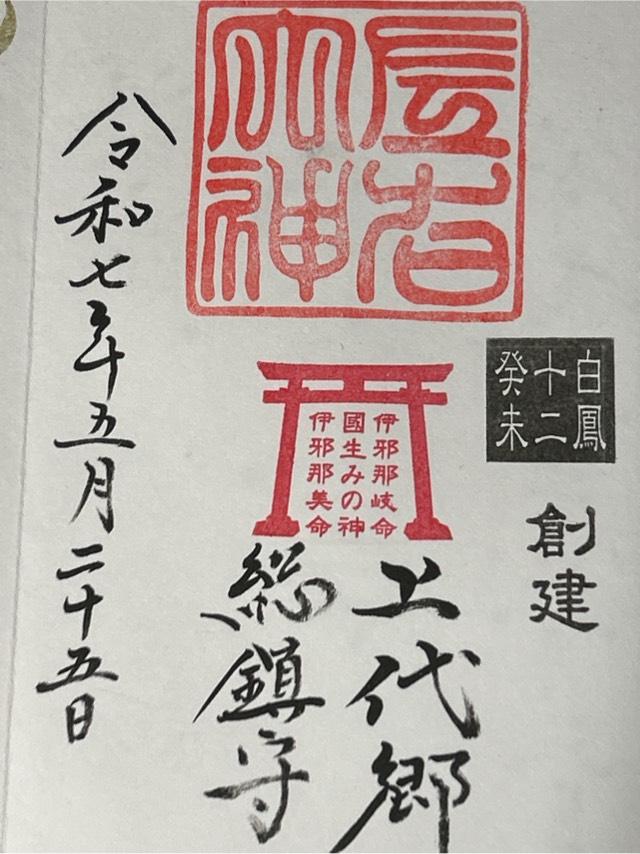 左右
大神
白鳳
十二
癸未
創建
伊邪那岐命
國生みの神
伊邪那美命
上代郷
総鎮守
令和七年五月二十五日